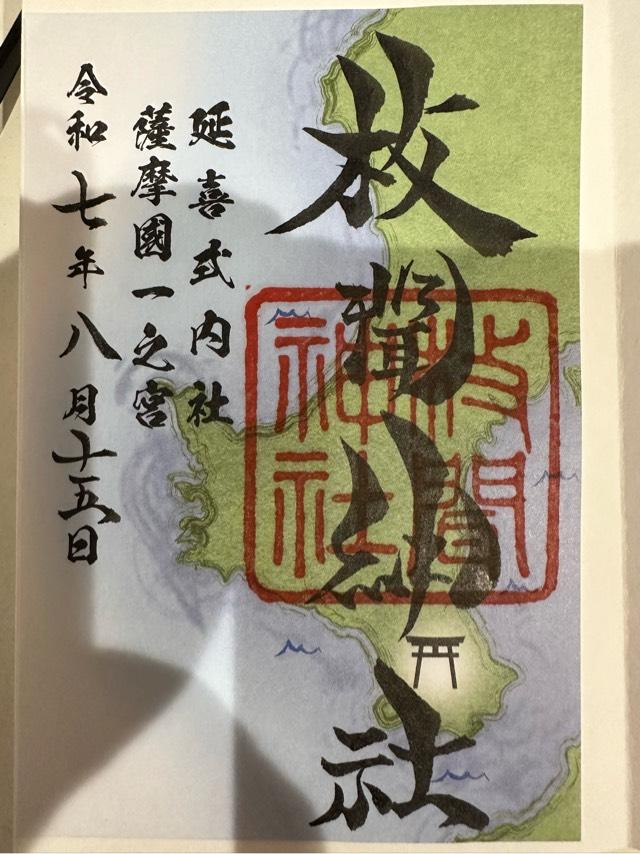 枚聞神社
枚聞
神社
延喜式内社
薩摩國一之宮
令和七年八月十五日